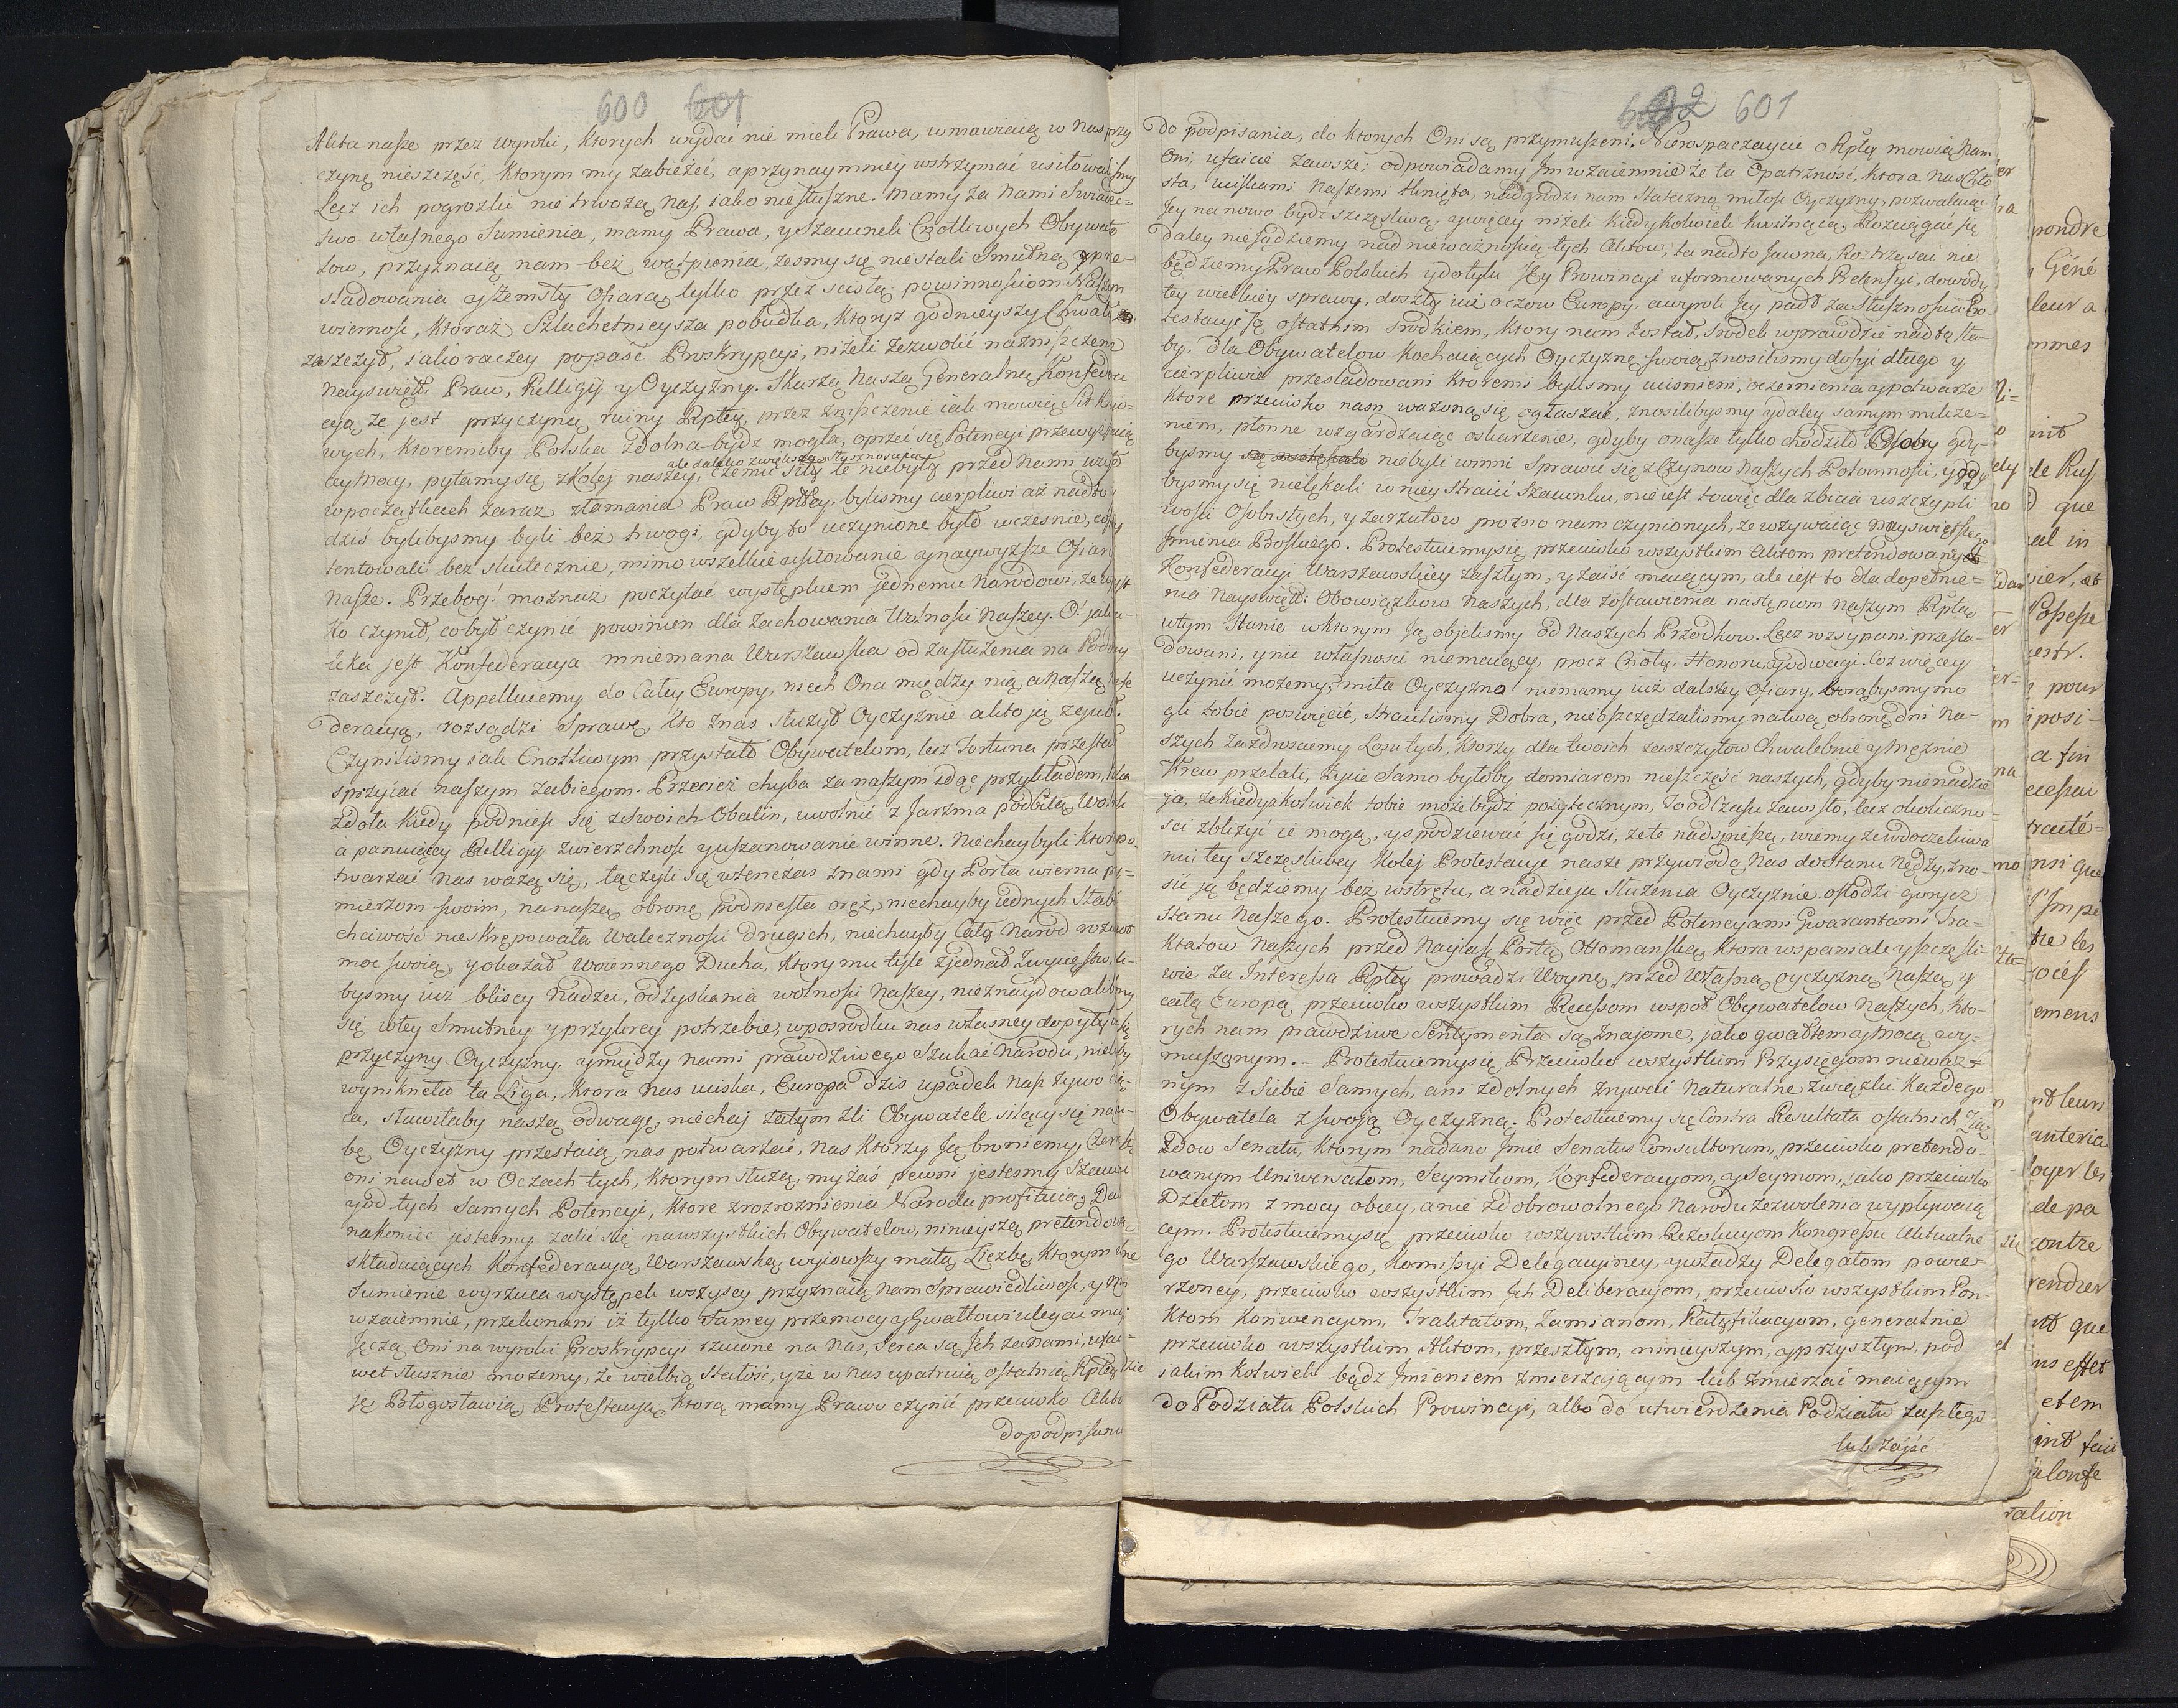 600 601
Akta nasze przez wyroki, ktorych wydać nie mieli Prawa, wmawiaią w nas przy
czynę nieszczęść, ktorym my zabieżeć, a przynaymniey wstrzymać usiłowaliśmy
Lecz ich pogrozki nie trwożą nas, iako niesłuszne. Mamy za nami Swiadec-
two własnego Sumienia, mamy Prawa, y Szacunek Cnotliwych Obywate
low, przyznaią nam beż wątpienia, żesmy się niestali Smutną prze-
sladowania y Zemsty Ofiarą, tylko przez scisłą powinnosciom Naszym
wiernosc, ktoraż Szlachetnieysza pobudka, ktoryż godnieyszy Chwały
zaszczyt, iako raczey popaść Proskrypcyi, niżeli zezwolić na zniszczenie
Nayswięt: Praw, Relligij y Oyczyzny. Skarżą Naszą Generalną Konfede
cyą że jest przyczyną ruiny Rptey, przez zniszczenie iak mowią Sił kraio-
wych, ktoremiby Polska zdolna bydz mogła, oprzeć się Potencyi przewyższaią
ale daleko zwiększą słusznoscią
cey Mocy, pytamy się z Kolej naszey, czemuć siły te niebyły przed nami użyte
w początkach zaraz złamania Praw Rptey, bylismy cierpliwi aż nadto
dziś bylibysmy byli beż trwogi, gdyby to uczynione było wczesnie, cosmy
tentowali bez skutecznie, mimo wszelkie usiłowanie y naywyższe Ofiary
Nasze. Przebog! możnaż poczytać występkiem jednemu Narodowi, że wszyst
ko czynił, co był czynić powinien dla Zachowania Wolnosci Naszey. O! jak da-
leka jest Konfederacya mniemana Warszawska od zasłużenia na Podobny
zaszczyt. Appellujemy do Całey Europy, niech Ona między nią a Naszą Konfe
deracyą, rozsądzi Sprawę, kto z nas służył Oyczyznie a kto ją zgubił.
Czynilismy iak Cnotliwym przystało Obywatelom, lecz Fortuna przestała
sprzyiać naszym zabiegom. Przecież chyba za naszym idąc przykładem,
zdoła kiedy podniesc się z swoich Obalin, uwolnić z Jarzma podbitą Wolnosc
a panuiącey Relligij zwierzchnosc y uszanowanie winne. Niechayby li ktorzy po-
twarzać nas ważą się, łączyli się wtenczas z nami gdy Porta wierna py-
mierzom swoim, na naszą obronę podniesła oręż, niechayby iednych Słab
chciwość nieskrępowała Walecznosci drugich, niechayby Cały Narod rozwiodł
moc swoią, y okazał Woiennego Ducha, ktory mu tyle zjednał Zwycięstw, li-
bysmy iuż bliscy Nadziei, odzyskania wolnosci Naszey, nieznaydowalibysmy
się w tey Smutney y przykrey potrzebie, w posrodku nas własney dopytywać się
przyczyny Oyczyzny, y między nami prawdziwego Szukać Narodu, nieby
wynikneło ta Liga, ktora nas uciska, Europa dzis upadek nasz żywo czu-
ła, stawiłaby naszą odwagę, niechaj zatym zli Obywatele silący się na zgu-
bę Oyczyzny przestaią nas potwarzać, Nas ktorzy Ją bronimy, Czern
oni nawet w Oczach tych, ktorym służą, my zaś pewni jestesmy Szacun
y od tych Samych Potencyi, ktore z rozrożnienia Narodu profituią. Da
nakoniec jestesmy żalić się, na wszystkich Obywatelow, ninieyszą pretendowa-
składaiących Konfederacyą Warszawską, wyiowszy małą Liczbę, ktorym wła
Sumienie wyrzuca występek wszyscy przyznaią nam Sprawiedliwosc, y My
wzaiemnie, przekonani iż tylko Samey przemocy y Gwałtowi ulegać muszą;
Jęczą Oni na wyroki Proskrypcyi rzucone na Nas, Serca są Ich za Nami, ufai-
wet słusznie możemy, że wielbią stałość, y że w Nas upatruią ostatnią Rptey
ję Błogosławią Protestacyą, ktorą mamy Prawo czynić przeciwko Aktom
Do podpisania
602 601
Do podpisania, do ktorych Oni są przymuszeni. Nierospaczaycie o Rptey mowią Nam
Oni, ufaicie zawsze; odpowiadamy Im wzaiemnie że ta Opatrzność, ktora Nas Chło
sta, uciskami Naszemi tknięta, nadgrodzi nam Stateczną miłosc Oyczyzny, pozwalaiąc
Jey na nowo bydz szczęsliwą, y więcey niżeli kiedykolwiek kwitnącą. Rozciągać się
daley niesądziemy nad nieważnością tych Aktow, ta nadto Jawna, Roztrząsać nie
będziemy Praw Polskich y do tylu Jey Prowincyi uformowanych Pretensyi, dowody
tey wielkiey sprawy, doszły iuż oczow Europy, a wyrok Jey padł za Słusznoscią. Pro-
testacye są ostatnim srodkiem, ktory nam został, srodek wprawdzie nadto sła-
by. Dla Obywatelow Kochaiących Oyczyznę swoią, znosilismy dosyi długo y
cierpliwie przesladowani ktoremi bylismy ucisnieni, oczernienia y potwarze
ktore przeciwko nasn ważoną się ogłaszać, znosilibysmy y daley samym milcze-
niem, płonne wzgardzaiąc oskarżenie, gdyby o nasze tylko chodziło Osoby gdy-
bysmy niebyli winni Sprawić się z Czynow Naszych Potomnosci, y gdy
bysmy się nielękali w niey stracić Szacunku, nie iest to więc dla zbicia uszczypli
wosci Osobistych, y zarzutow prozno nam czynionych, że wzywaiąc Nayswiętszego
Imienia Boskiego. Protestuiemy się przeciwko wszystkim Aktom pretendowaney
Konfederacyi Warszawskiey zaszłym, y zaiść maiącym, ale iest to dla dopełnie-
nia Nayswięt: Obowiązkow Naszych, dla zostawienia następcom Naszym Rptey
w tym Stanie w ktorym Ją objelismy od Naszych Przodkow. Lecz rozsypani, przesla-
dowani, y nic własnosci niemaiący, procz Cnoty, Honoru, y odwagi. Coż więcey
uczynić możemy; miła Oyczyzno niemamy iuż dalszey Ofiary, którąbysmy mo
gli tobie poswięcić, straciliśmy Dobra, nieoszczędzalismy na twą obronę dni Na-
szych zazdrosciemy Losu tych, ktorzy dla twoich zaszczytow Chwalebnie y Mężnie
Krew przelali, Życie Samo byłoby domiarem nieszczęść naszych, gdyby nie nadzie
ja, że kiedyżkolwiek tobie może bydz pożytecznym, To od Czasu zawisło, lecz okoliczno-
sci zbliżyć ie mogą, y spodziewać się godzi, że te nadspieszą, wiemy że w doczekiwa
niu tey szczęsliwey kolej Protestacye nasze przywiodą Nas do Stanu Nędzy, zno-
sić ją będziemy bez wstrętu, a nadzieja Służenia Oyczyznie osłodzi gorycz
stanu Naszego. Protestuiemy się więc przed Potencyami Gwarantami Tra-
ktatow Naszych przed Nayiaśn: Portą Ottomanską, ktora wspaniale y szczęsli-
wie za Interessa Rptey prowadzi Woynę, przed Własną oyczyzną Naszą y
całą Europą, przeciwko wszystkim Recessom wspoł Obywatelow Naszych, kto-
rych nam prawdziwe Sentymenta są znajome, jako gwałtem y Mocą wy-
muszonym. - Protestuiemy się Przeciwko wszystkim Przysięgom nieważ-
nym z Siebie Samych, ani zdolnych zrywać Naturalne związki każdego
Obywatela z swoją Oyczyzną. Protestuiemy się Contra Resultata ostatnich Ziaz
zdow Senatu, ktorym nadano Imie Senatus Consultorum, przeciwko pretendo-
wanym Uniwersałom, Seymikom, Konfederacyom, y Seymom, jako przeciwko
Dziełom z mocy obcey, a nie z dobrowolnego Narodu Zezwolenia wypływaią
cym. Protestuiemy się przeciwko wszystkim Rezolucyom Kongressu Aktualne
go Warszawskiego, Komissyi Delegacyiney, y władzy Delegatom powie-
rzoney, przeciwko wszystkim Ich Deliberacyom, przeciwko wszystkim Pun-
ktom Konwencyom, Traktatom, Zamianom, Ratyfikacyom, generalnie
przeciwko wszystkim Aktom, przeszłym, ninieyszym, y przyszłym, pod
iakim kolwiek bądz Imieniem zmierzającym lub zmierzać maiącym
do Podziału Polskich Prowincyi, albo do utwierdzenia Podziału zaszłego
lub zajść